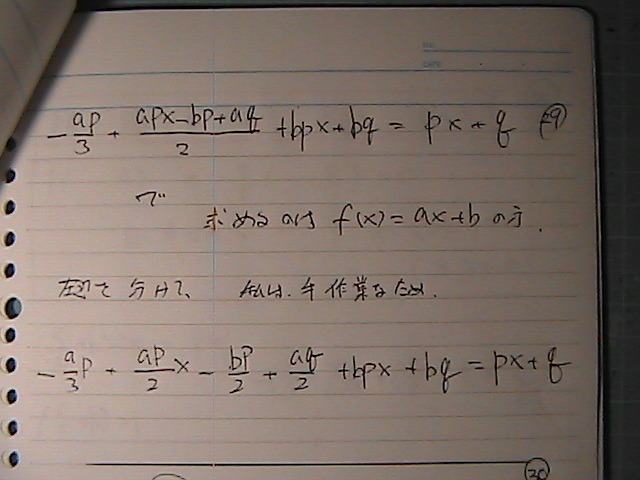 NO.
DATE
-ap/3 + (apx-bp+aq)/2 + bpx+bq = px+q
で
求めるのは f(x)=ax+b の方.
左辺を 分けて、 私は、手作業なため.
-a/3 p + ap/2 x - bp/2 + aq/2 + bpx + bq = px+q
30